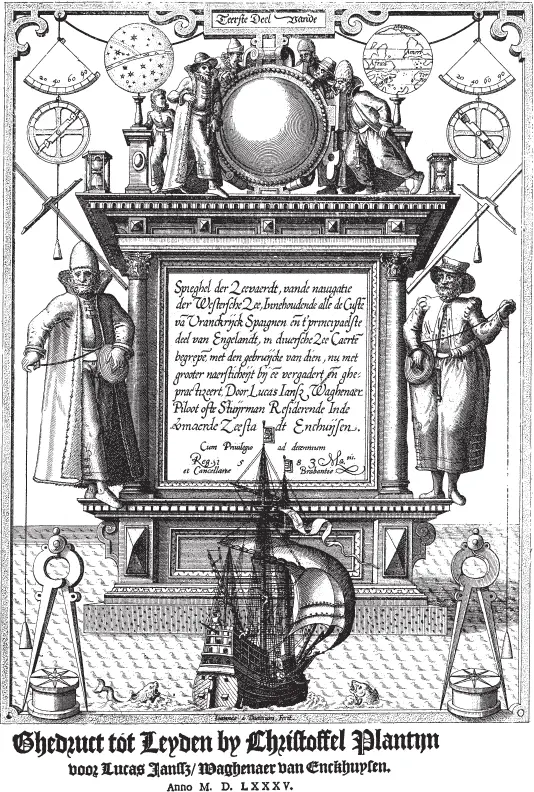 Teerste Deel vande
20 40 60 80
20 40 60 80
Africa
Spieghel der Zeevaerdt, vande nauigatie
der Westersche Zee, Innehoudende alle de Custē
vā Vranckrijck Spaignen eñ t'principaelste
deel van Engelandt, in diuersche Zee Caertē
begrepē, met den gebruijcke van dien, nu met
grooter naersticheijt bij eē vergadert eñ ghe-
practizeert, Door Lucas Iansz Waghenaer
Piloot ofte Stuijrman Residerende Inde
vermaerde Zeestadt Enchuijsen.
Cum Priuilegio ad decennium
Reg. 5 8 3 Ma
et Cancellarie Brabantie
Ioannes a Fecit.
Ghedruct tot Leyden by Christoffel Plantijn
voor Lucas Janssz/ Waghenaer van Enckhuysen.
Anno M. D. LXXXV.